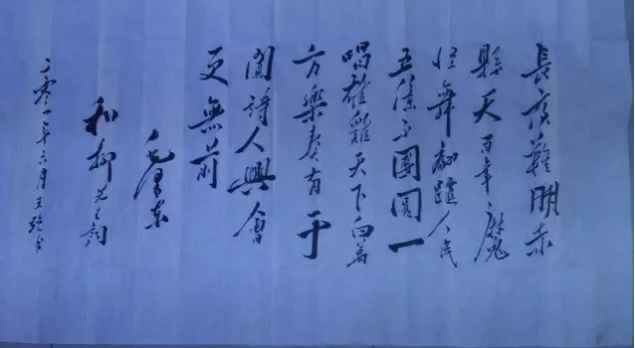 長夜難明赤
縣天百年魔
怪舞翩躚人民
五億不團圓一
唱雄雞天下白萬
方樂奏有于
闐詩人興會
更無前
毛澤東
和柳先生韵
二零一年六月王